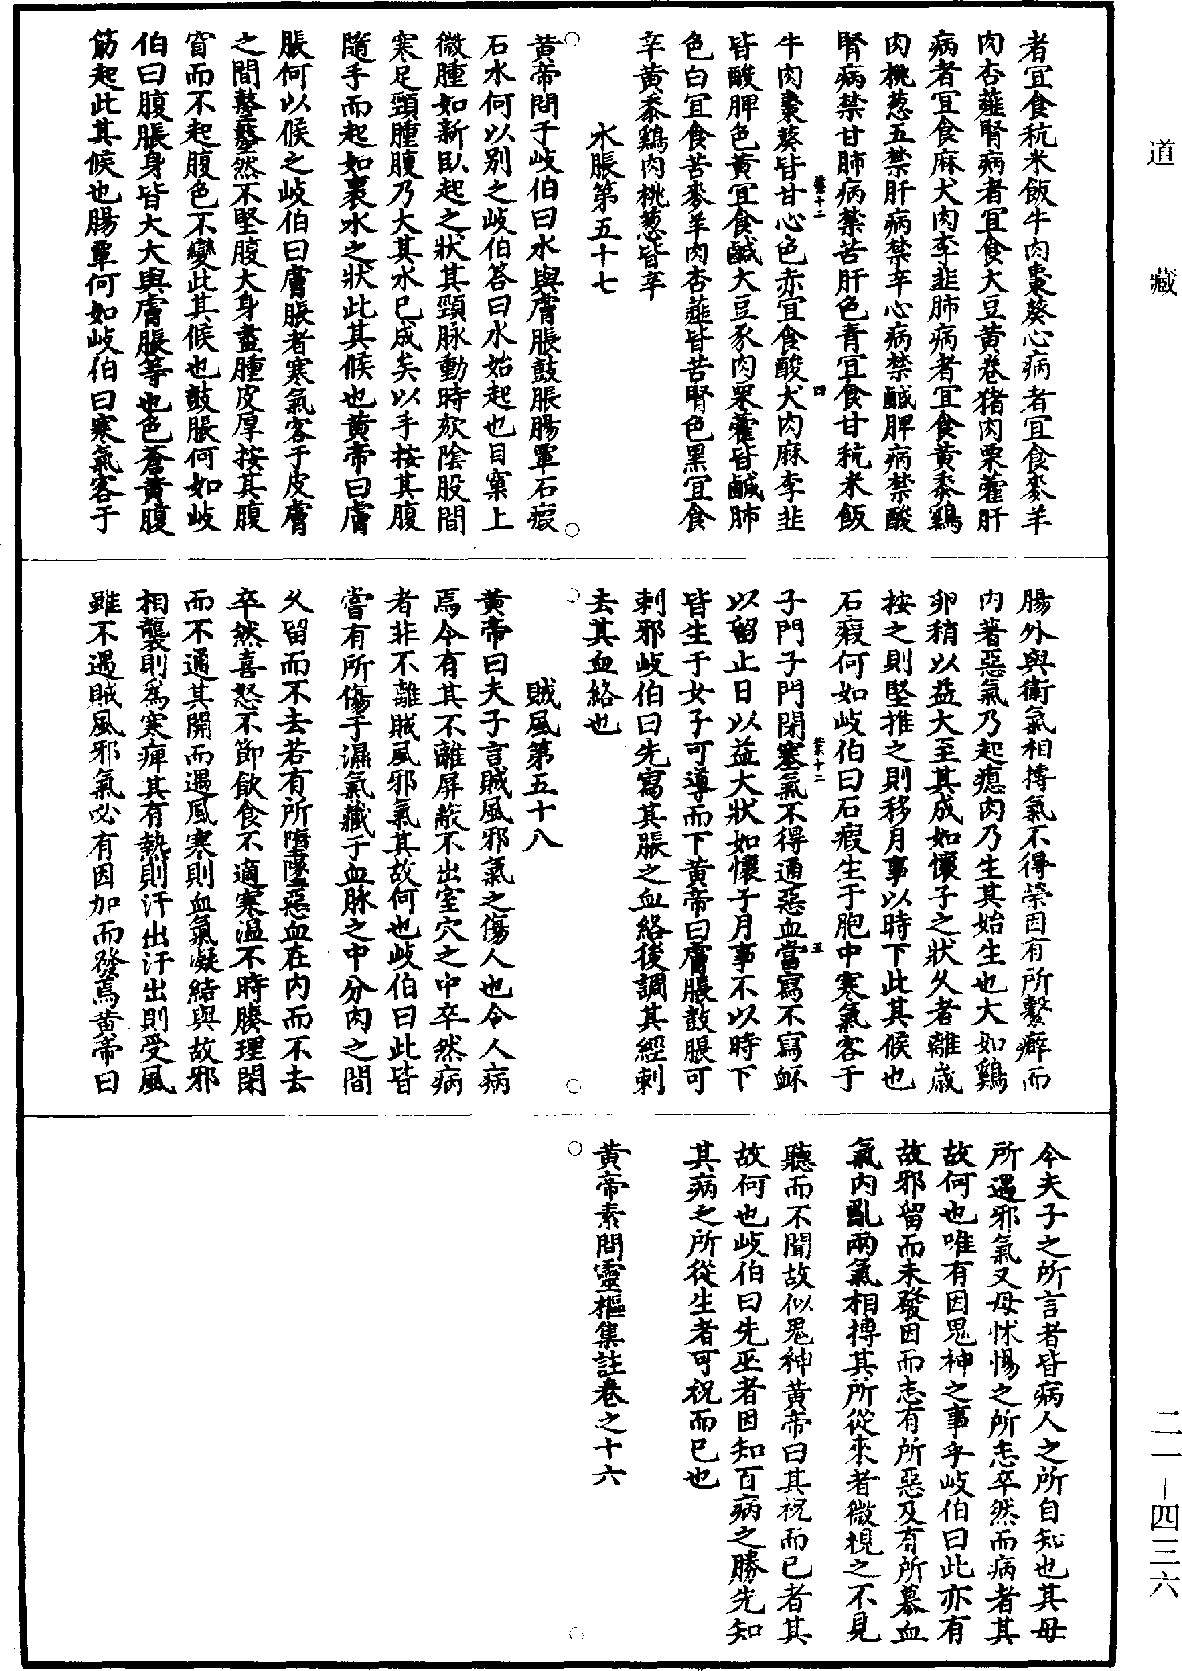 道藏
者宜食秔米飯牛肉棗葵心病者宜食麥羊
肉杏薤腎病者宜食大豆黃卷猪肉栗藿肝
病者宜食麻犬肉李韭肺病者宜食黃黍鷄
肉桃葱五禁肝病禁辛心病禁鹹脾病禁酸
腎病禁甘肺病禁苦肝色青宜食甘秔米飯
牛肉棗葵皆甘心色赤宜食酸犬肉麻李韭
皆酸脾色黃宜食鹹大豆豕肉栗藿皆鹹肺
色白宜食苦麥羊肉杏薤皆苦腎色黑宜食
辛黃黍鷄肉桃葱皆辛
水脹第五十七
黃帝問于岐伯曰水與膚脹鼓脹腸覃石瘕
石水何以別之岐伯答曰水始起也目窠上
微腫如新臥起之狀其頸脉動時欬陰股間
寒足頸腫腹乃大其水已成矣以手按其腹
隨手而起如裹水之狀此其候也黃帝曰膚
脹何以候之岐伯曰膚脹者寒氣客于皮膚
之間𪔣𪔣然不堅腹大身盡腫皮厚按其腹
窅而不起腹色不變此其候也鼓脹何如岐
伯曰腹脹身皆大大與膚脹等也色蒼黃腹
筋起此其候也腸覃何如岐伯曰寒氣客于
腸外與衛氣相搏氣不得榮因有所繫癖而
內著惡氣乃起瘜肉乃生其始生也大如鷄
卵稍以益大至其成如懷子之狀久者離歲
按之則堅推之則移月事以時下此其候也
石瘕何如岐伯曰石瘕生于胞中寒氣客于
子門子門閉塞氣不得通惡血當寫不寫衃
以留止日以益大狀如懷子月事不以時下
皆生于女子可導而下黃帝曰膚脹鼓脹可
刺邪岐伯曰先寫其脹之血絡後調其經刺
去其血絡也
賊風第五十八
黃帝曰夫子言賊風邪氣之傷人也令人病
焉今有其不離屏蔽不出室穴之中卒然病
者非不離賊風邪氣其故何也岐伯曰此皆
嘗有所傷于濕氣藏于血脉之中分肉之間
久留而不去若有所墮墜惡血在內而不去
卒然喜怒不節飲食不適寒溫不時腠理閉
而不通其開而遇風寒則血氣凝結與故邪
相襲則為寒痺其有熱則汗出汗出則受風
雖不遇賊風邪氣必有因加而發焉黃帝曰
今夫子之所言者皆病人之所自知也其毋
所遇邪氣又毋怵惕之所志卒然而病者其
故何也唯有因鬼神之事乎岐伯曰此亦有
故邪留而未發因而志有所惡及有所慕血
氣內亂兩氣相搏其所從來者微視之不見
聽而不聞故似鬼神黃帝曰其祝而已者其
故何也岐伯曰先巫者因知百病之勝先知
其病之所從生者可祝而已也
黃帝素問靈樞集註卷之十六
二一–四三六